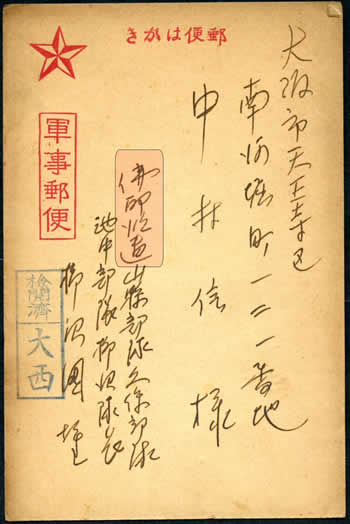 郵便はがき
大阪市天王寺区
南河堀町一二一番地
中林信様
佛印派遣山縣部隊久保部隊
池中部隊柳沢隊
柳沢國
軍事郵便
検閲済
大西